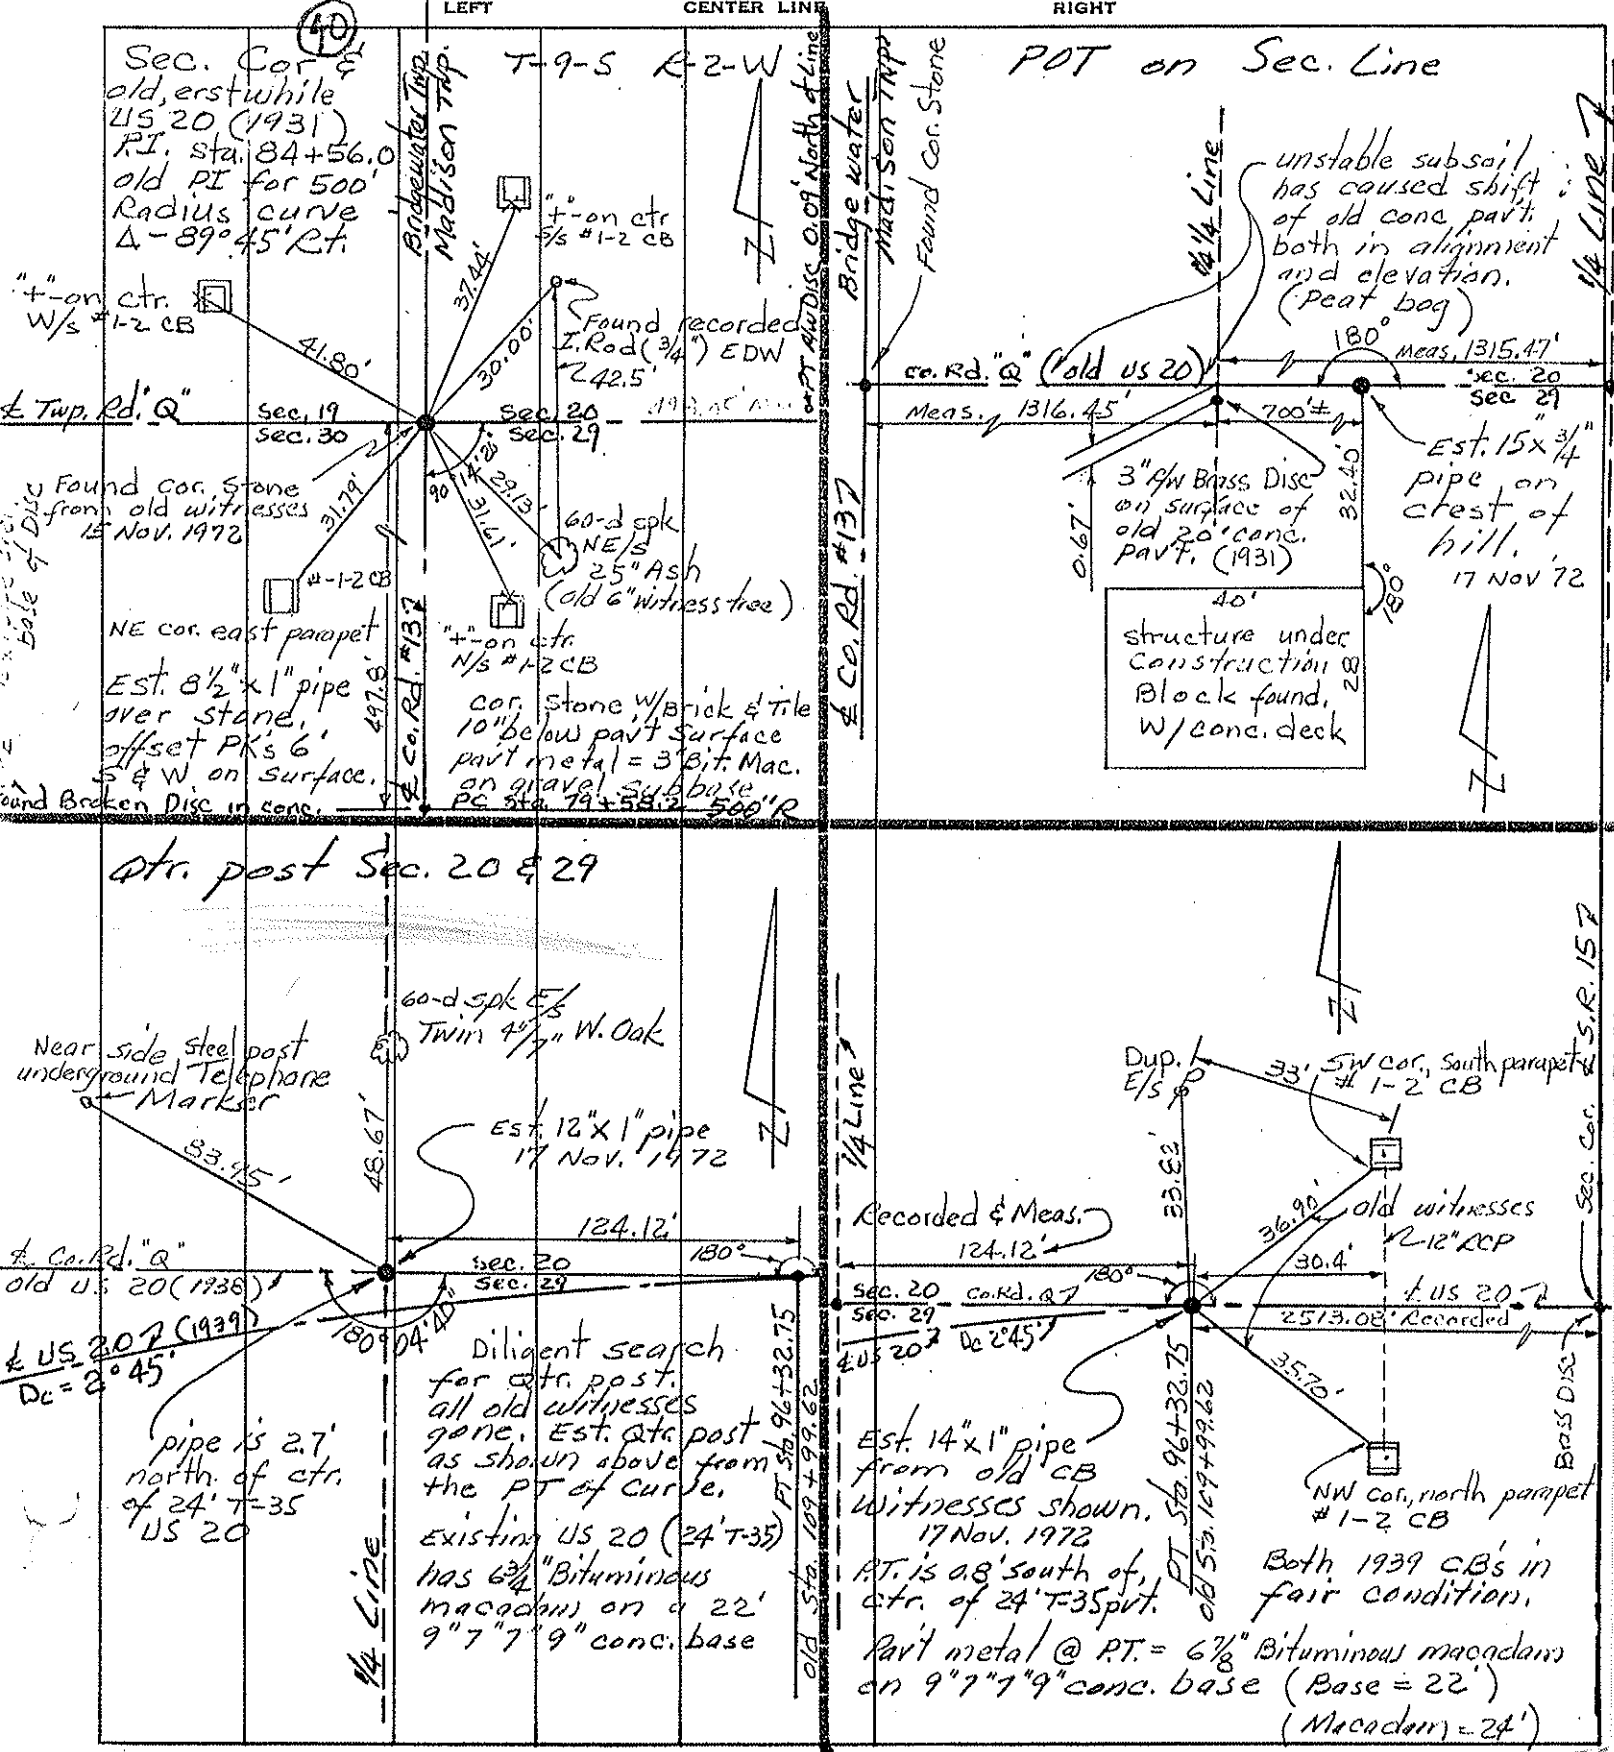 LEFT
CENTER LINE
RIGHT
40
Sec. Cor &
old, erstwhile
US 20 (1931)
P.I. sta. 84+56.0
old PI for 500'
Radius curve
Δ-89°45' Rt.
Bridgewater Twp.
Madison Twp.
T-9-S R-2-W
"+"-on ctr
S/s #1-2 CB
37.44'
"+"-on ctr.
W/s #1-2 CB
41.80'
30.00'
Found recorded
I. Rod (3/4") EDW
42.5'
℄ Twp. Rd. "Q"
Sec. 19
Sec. 30
Sec. 20
Sec. 29
Found cor. stone
from old witnesses
15 Nov. 1972
31.79'
90
29.13'
31.61'
60-d spk
NE/s
25" Ash
(old 6" witness tree)
#-1-2 CB
NE cor. east parapet
"+"-on ctr.
N/s #1-2 CB
Est. 8 1/2" x 1" pipe
over stone,
offset PK's 6'
S & W on surface.
497.8'
℄ Co. Rd. #137
cor. stone W/Brick & Tile
10" below pav't surface
pav't metal = 3" Bit. Mac.
on gravel subbase
Found Broken Disc in conc.
PC Sta. 79+58.2 500" R
Base of Disc
PT A/W Disc 0.09' North of Line
POT on Sec. Line
Bridgewater
Madison TNP
Found Cor. Stone
1/4 1/4 Line
1/4 Line
unstable subsoil
has caused shift
of old conc pav't.
both in alignment
and elevation.
(Peat bog)
180°
Meas. 1315.47'
Co. Rd. "Q" (old US 20)
Sec. 20
Sec 29
Meas. 1316.45'
700'±
Est. 15 x 3/4"
pipe on
crest of
hill.
17 NOV '72
3" A/W Brass Disc
on surface of
old 20' conc.
pav't. (1931)
32.40'
0.67'
180°
℄ Co. Rd. #137
40'
structure under
Construction
Block found,
W/conc. deck
28
Qtr. post Sec. 20 & 29
60-d spk E/s
Twin 4"/7" W. Oak
Near side steel post
underground Telephone
Markser
83.45'
48.67'
Est. 12" x 1" pipe
17 Nov. 1972
124.12'
180°
℄ Co. Rd. "Q"
old US 20 (1938)
Sec. 20
Sec. 29
℄ US 20 (1939)
Dc = 2°45'
180° 04' 40"
pipe is 2.7'
north of ctr.
of 24' T-35
US 20
Diligent search
for Qtr. post.
all old witnesses
gone. Est. Qtr. post
as shown above from
the PT of Curve.
Existing US 20 (24' T-35)
has 6 3/4" Bituminous
macadam on a 22'
9" 7" 7" 9" conc. base
1/4 Line
PT Sta. 96+32.75
old Sta. 109+99.62
1/4 Line
Dup.
E/s
33'
SW cor., South parapet
# 1-2 CB
33.82'
36.90'
old witnesses
12" RCP
Recorded & Meas.
124.12'
30.4'
180°
Sec. 20
Sec. 29
Co. Rd. Q
℄ US 20
Dc 2°45'
℄ US 20
2513.08' Recorded
35.70'
Sec. Cor. ℄ S.R. 15
Brass Disc
Est. 14" x 1" pipe
from old CB
Witnesses shown.
17 Nov. 1972
P.T. is 0.8' south of,
ctr. of 24' T-35 pvt.
PT Sta. 96+32.75
old Sta. 109+99.62
NW cor., north parapet
# 1-2 CB
Both 1939 CB's in
fair condition.
Pav't metal @ P.T. = 6 7/8" Bituminous macadam
on 9" 7" 7" 9" conc. base (Base = 22')
(Macadam = 24')